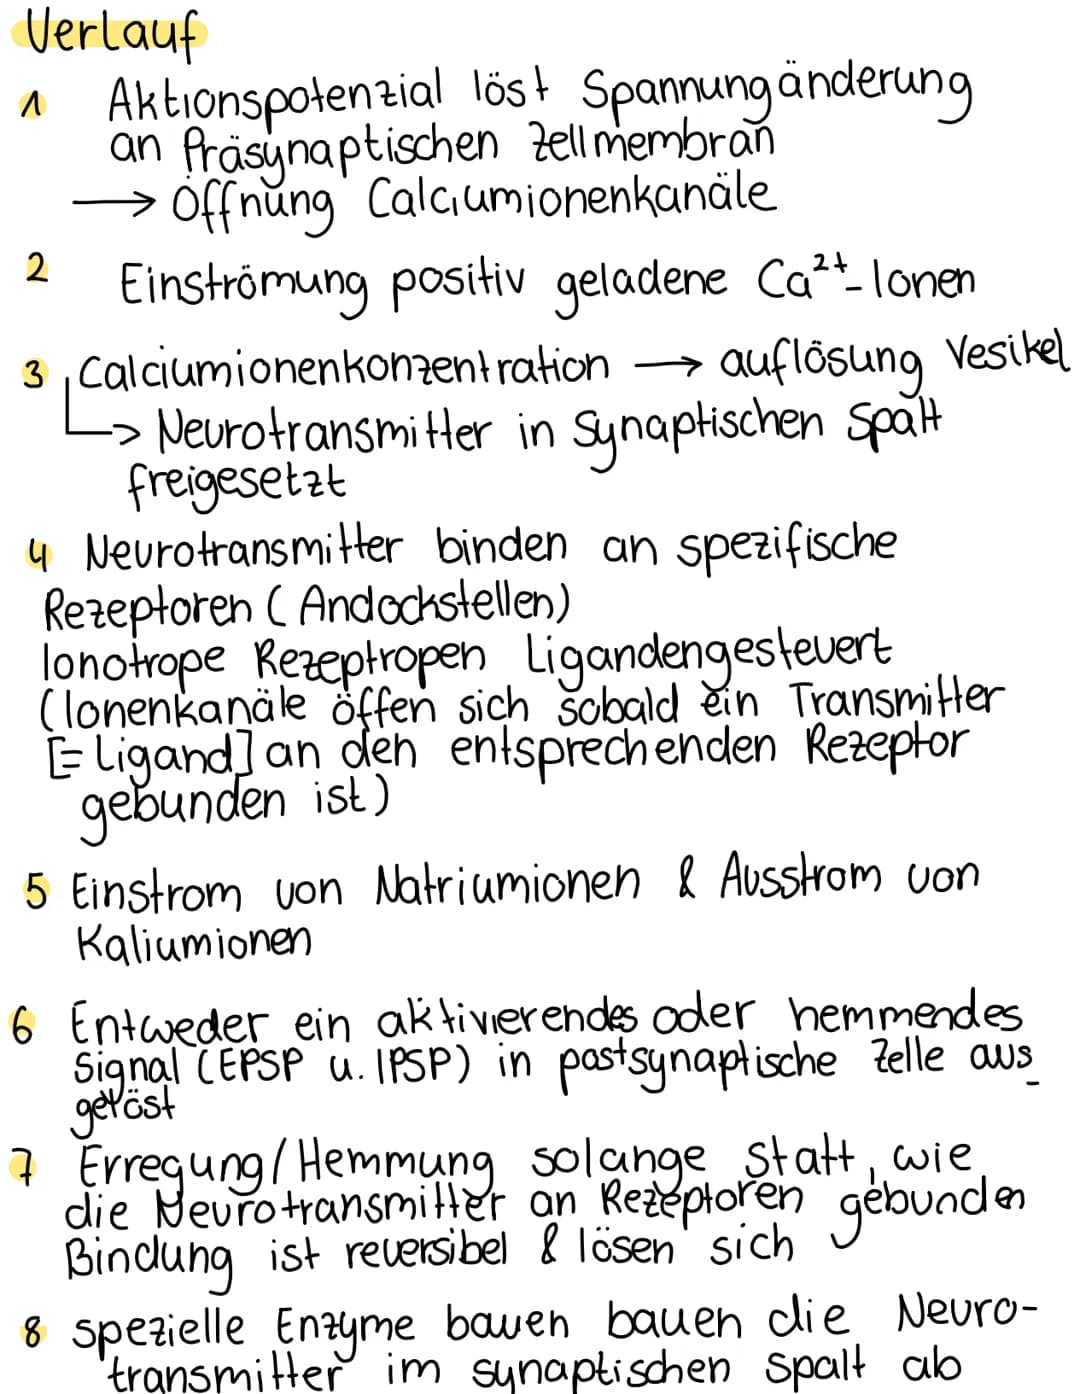 Verlauf
1 Aktionspotenzial löst Spannungänderung
an Präsynaptischen Zellmembran
→ Öffnung Calciumionenkanäle
2 Einströmung positiv geladene Ca²⁺-Ionen
3 Calciumionenkonzentration → auflösung Vesikel
↳ Neurotransmitter in Synaptischen Spalt
freigesetzt
4 Neurotransmitter binden an spezifische
Rezeptoren (Andockstellen)
Ionotrope Rezeptropen Ligandengesteuert
(Ionenkanäle öffen sich sobald ein Transmitter
[=Ligand] an den entsprechenden Rezeptor
gebunden ist)
5 Einstrom von Natriumionen & Ausstrom von
Kaliumionen
6 Entweder ein aktivierendes oder hemmendes
Signal (EPSP u. IPSP) in postsynaptische Zelle aus_
gelöst
7 Erregung/Hemmung solange statt, wie
die Neurotransmitter an Rezeptoren gebunden
Bindung ist reversibel & lösen sich
8 spezielle Enzyme bauen bauen die Neuro-
transmitter im synaptischen Spalt ab